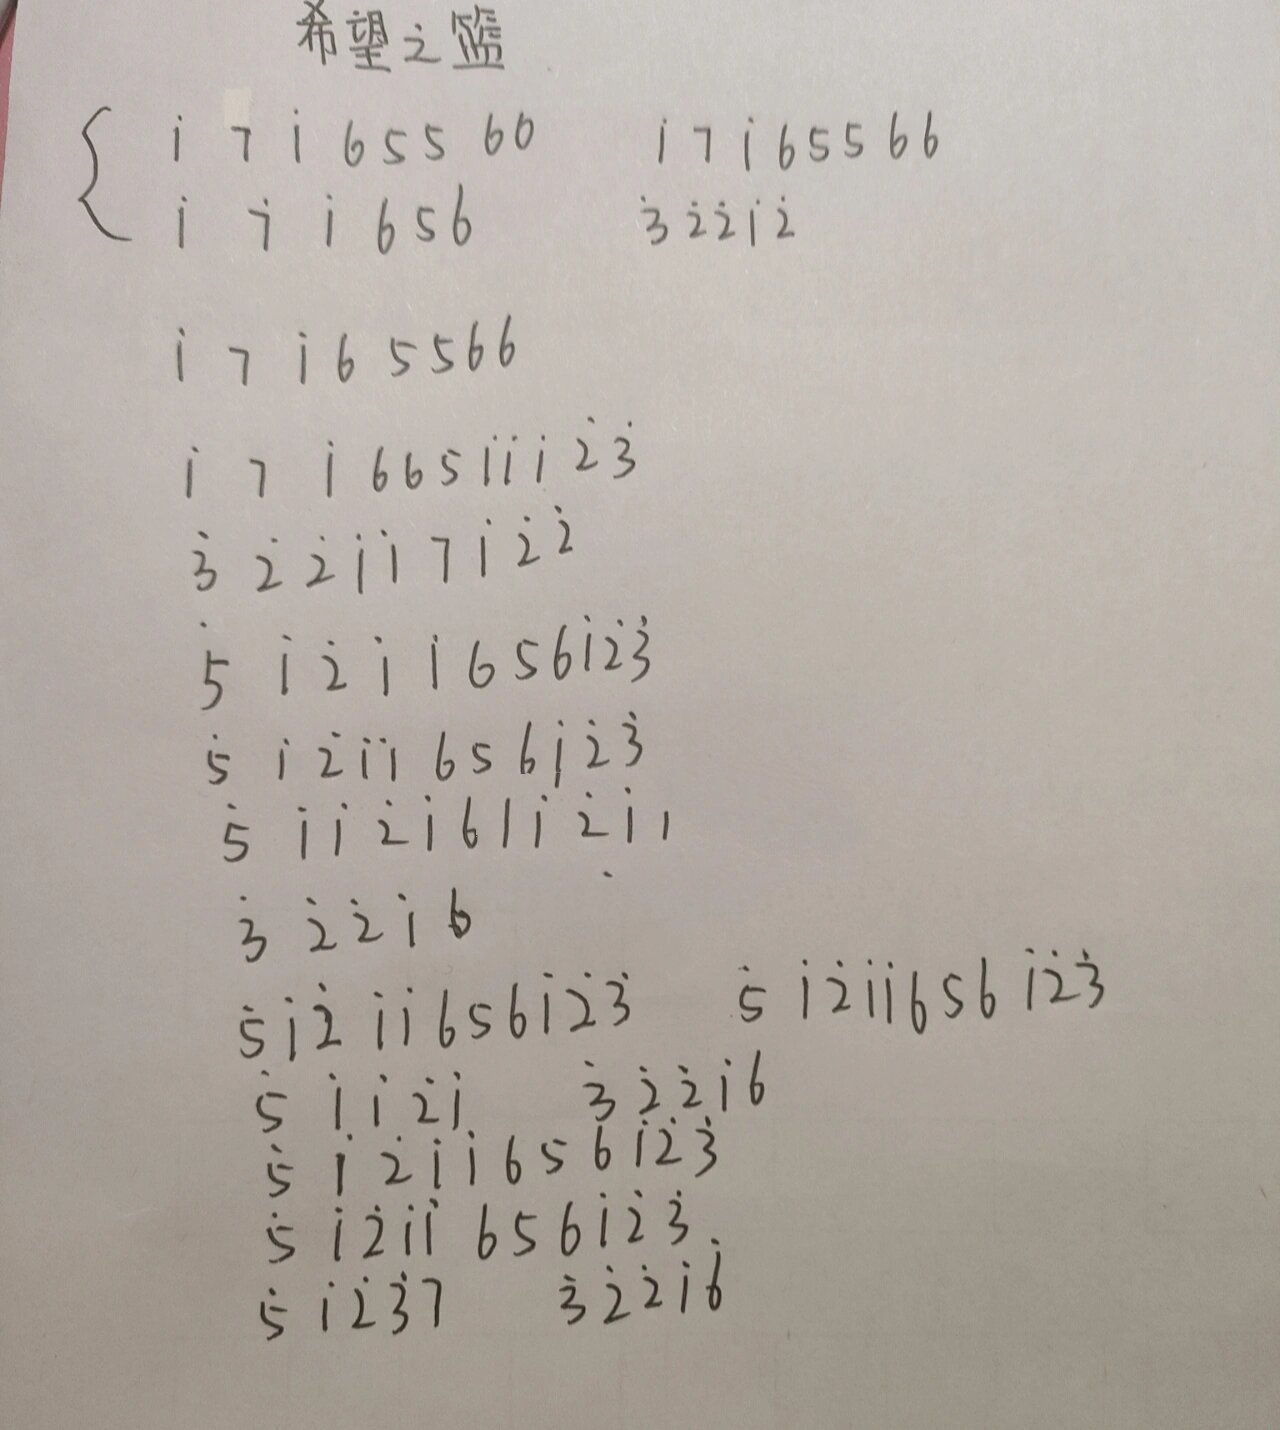 希望之篮
i 7 i 6 5 5 6 0 i 7 i 6 5 5 6 6
i 7 i 6 5 6 3̇ 2̇ 2̇ i 2̇
i 7 i 6 5 5 6 6
i 7 i 6 6 5 i i i 2̇ 3̇
3̇ 2̇ 2̇ i i 7 i 2̇ 2̇
5̇ i 2̇ i i 6 5 6 i 2̇ 3̇
5̇ i 2̇ i i 6 5 6 i 2̇ 3̇
5̇ i i 2̇ i 6 1 i 2̇ i 1
3̇ 2̇ 2̇ i 6
5̇ i 2̇ i i 6 5 6 i 2̇ 3̇ 5̇ i 2̇ i i 6 5 6 i 2̇ 3̇
5̇ i i 2̇ i 3̇ 2̇ 2̇ i 6
5̇ i 2̇ i i 6 5 6 i 2̇ 3̇
5̇ i 2̇ i i 6 5 6 i 2̇ 3̇
5̇ i 2̇ 3̇ 7 3̇ 2̇ 2̇ i 6̇